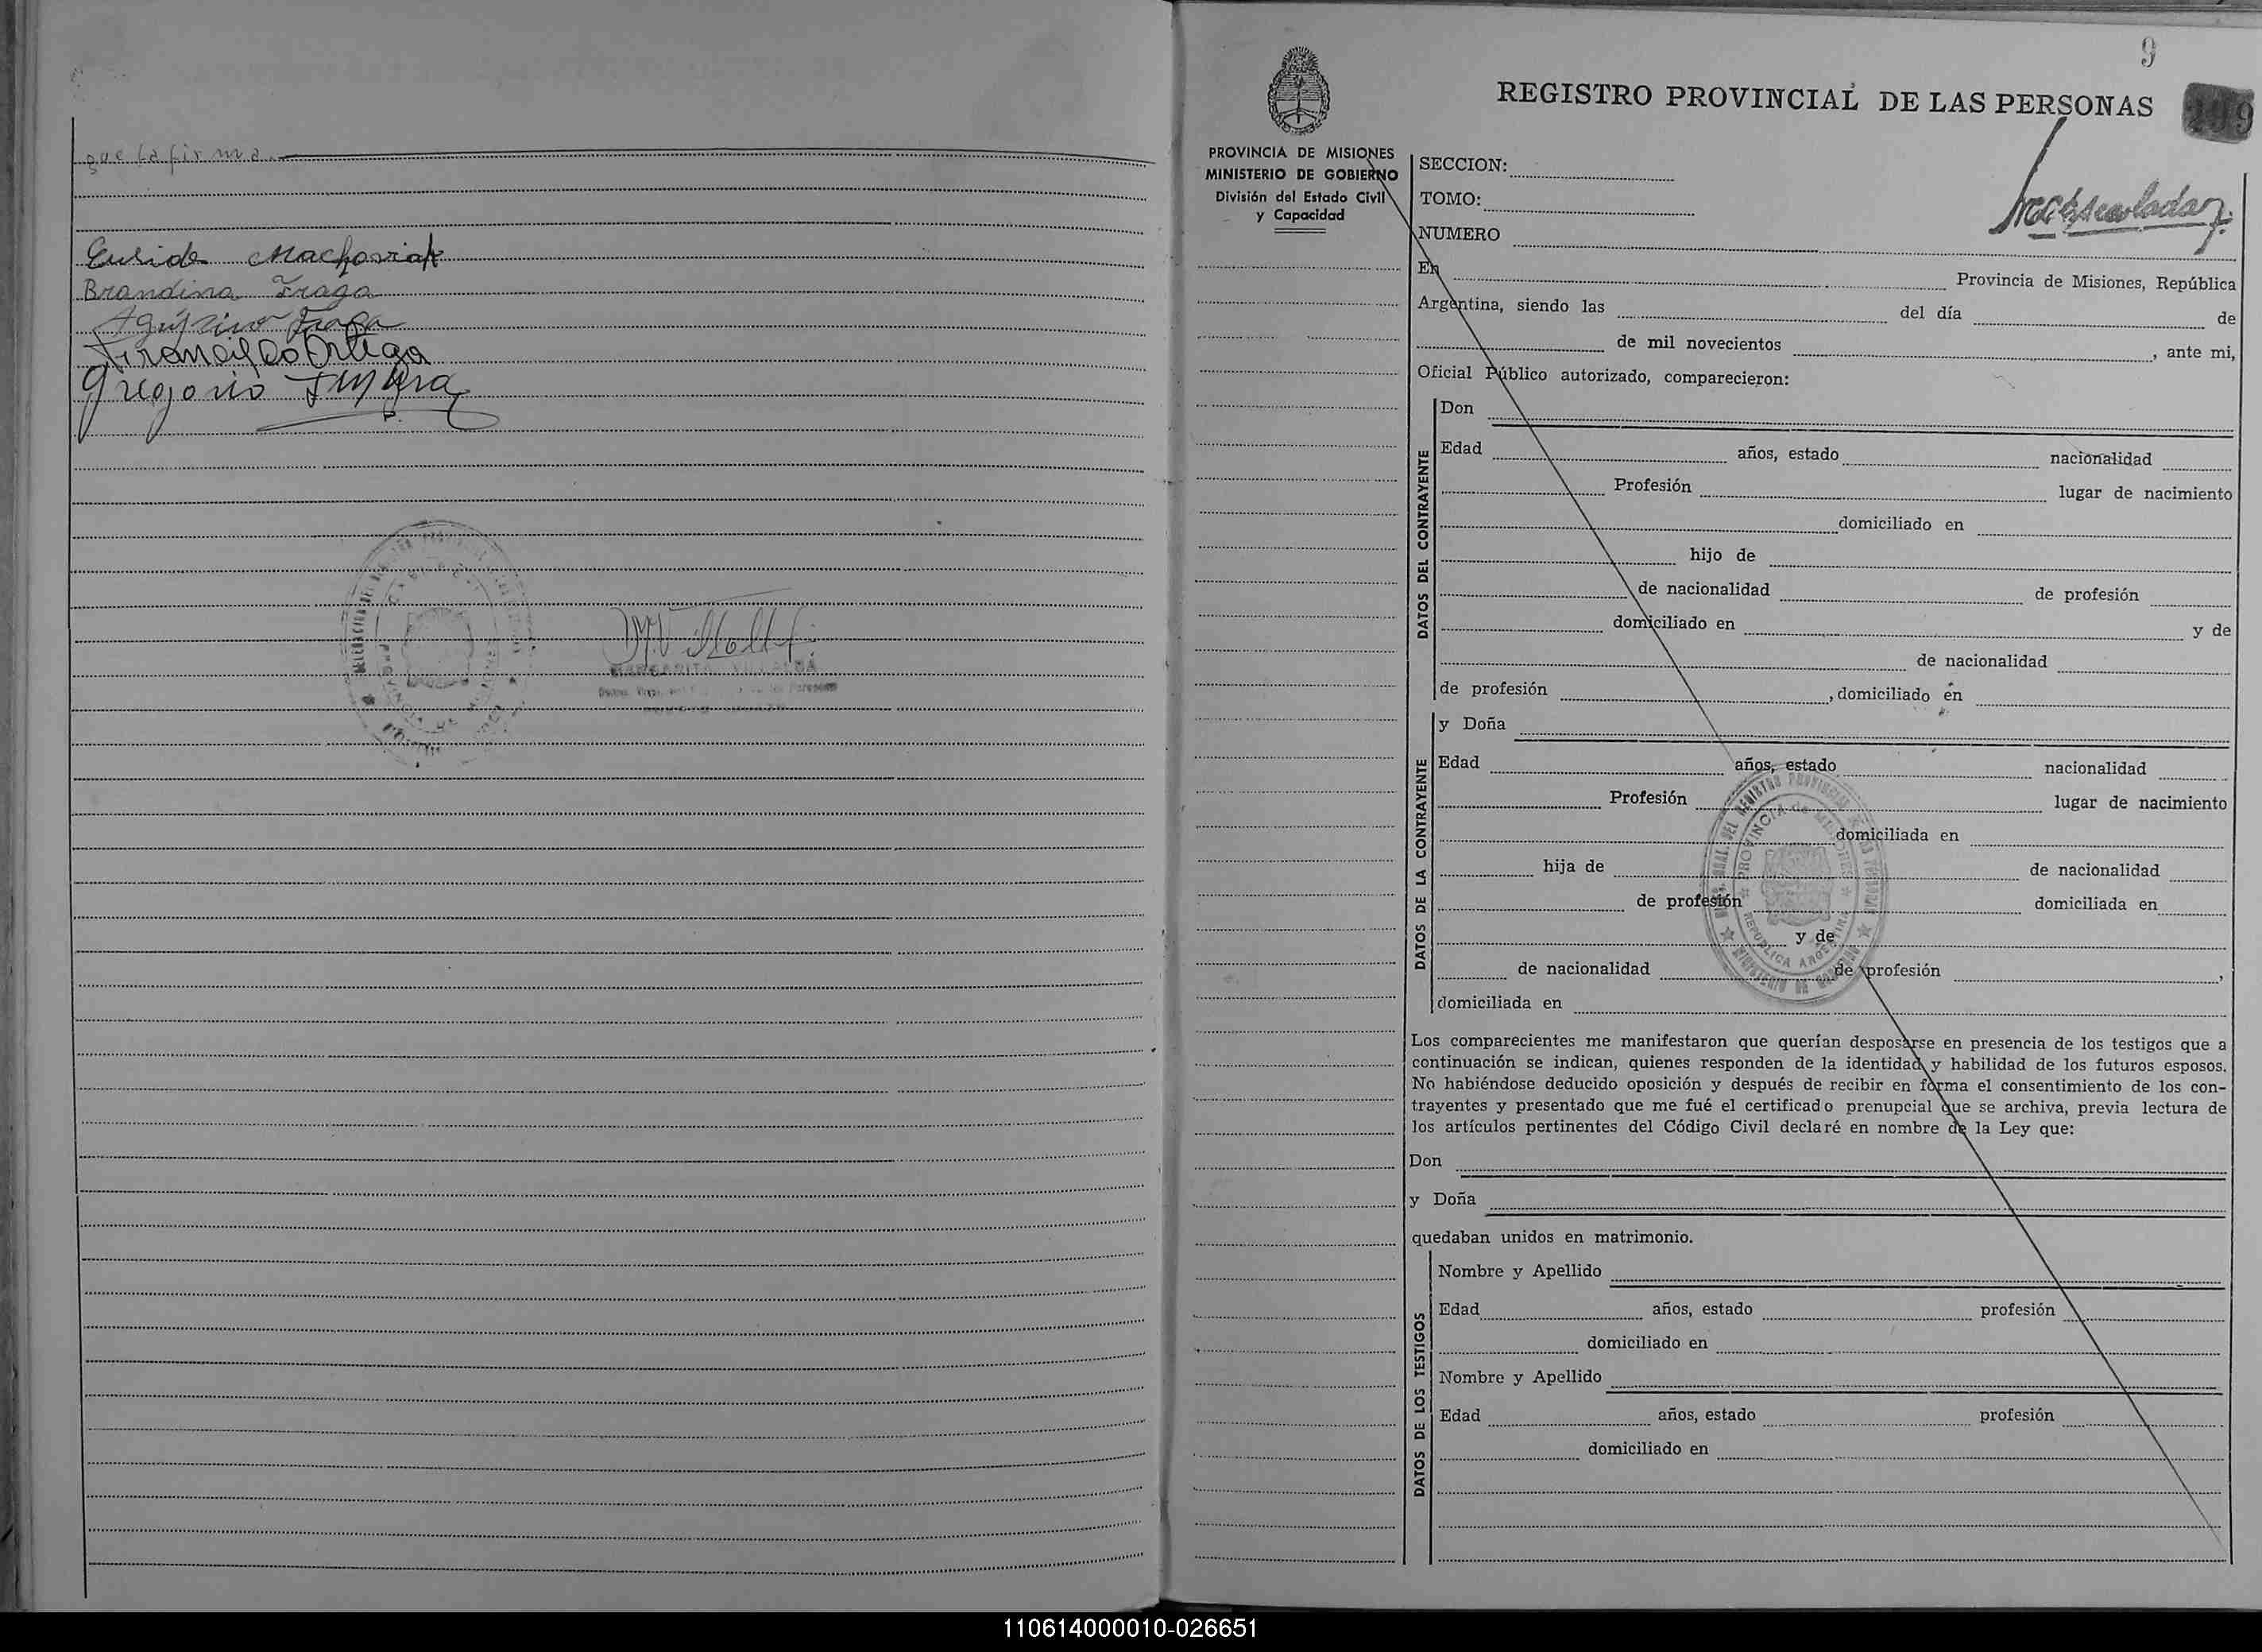 que la firma.
Euride Machoviak
Brandina Fraga
Agustino Fraga
Ortega
Gregorio
MARGARITA VILLALBA
9
REGISTRO PROVINCIAL DE LAS PERSONAS
199
PROVINCIA DE MISIONES
MINISTERIO DE GOBIERNO
División del Estado Civil
y Capacidad
SECCION:
TOMO:
NUMERO
En Provincia de Misiones, República
Argentina, siendo las del día de
de mil novecientos , ante mi,
Oficial Público autorizado, comparecieron:
DATOS DEL CONTRAYENTE
Don
Edad años, estado nacionalidad
Profesión lugar de nacimiento
domiciliado en
hijo de
de nacionalidad de profesión
domiciliado en y de
de nacionalidad
de profesión , domiciliado en
DATOS DE LA CONTRAYENTE
y Doña
Edad años, estado nacionalidad
Profesión lugar de nacimiento
domiciliada en
hija de de nacionalidad
de profesión domiciliada en
y de
de nacionalidad de profesión ,
domiciliada en
PROVINCIA de MISIONES
REPUBLICA ARGENTINA
Los comparecientes me manifestaron que querían desposarse en presencia de los testigos que a
continuación se indican, quienes responden de la identidad y habilidad de los futuros esposos.
No habiéndose deducido oposición y después de recibir en forma el consentimiento de los con-
trayentes y presentado que me fué el certificado prenupcial que se archiva, previa lectura de
los artículos pertinentes del Código Civil declaré en nombre de la Ley que:
Don
y Doña
quedaban unidos en matrimonio.
DATOS DE LOS TESTIGOS
Nombre y Apellido
Edad años, estado profesión
domiciliado en
Nombre y Apellido
Edad años, estado profesión
domiciliado en
110614000010-026651